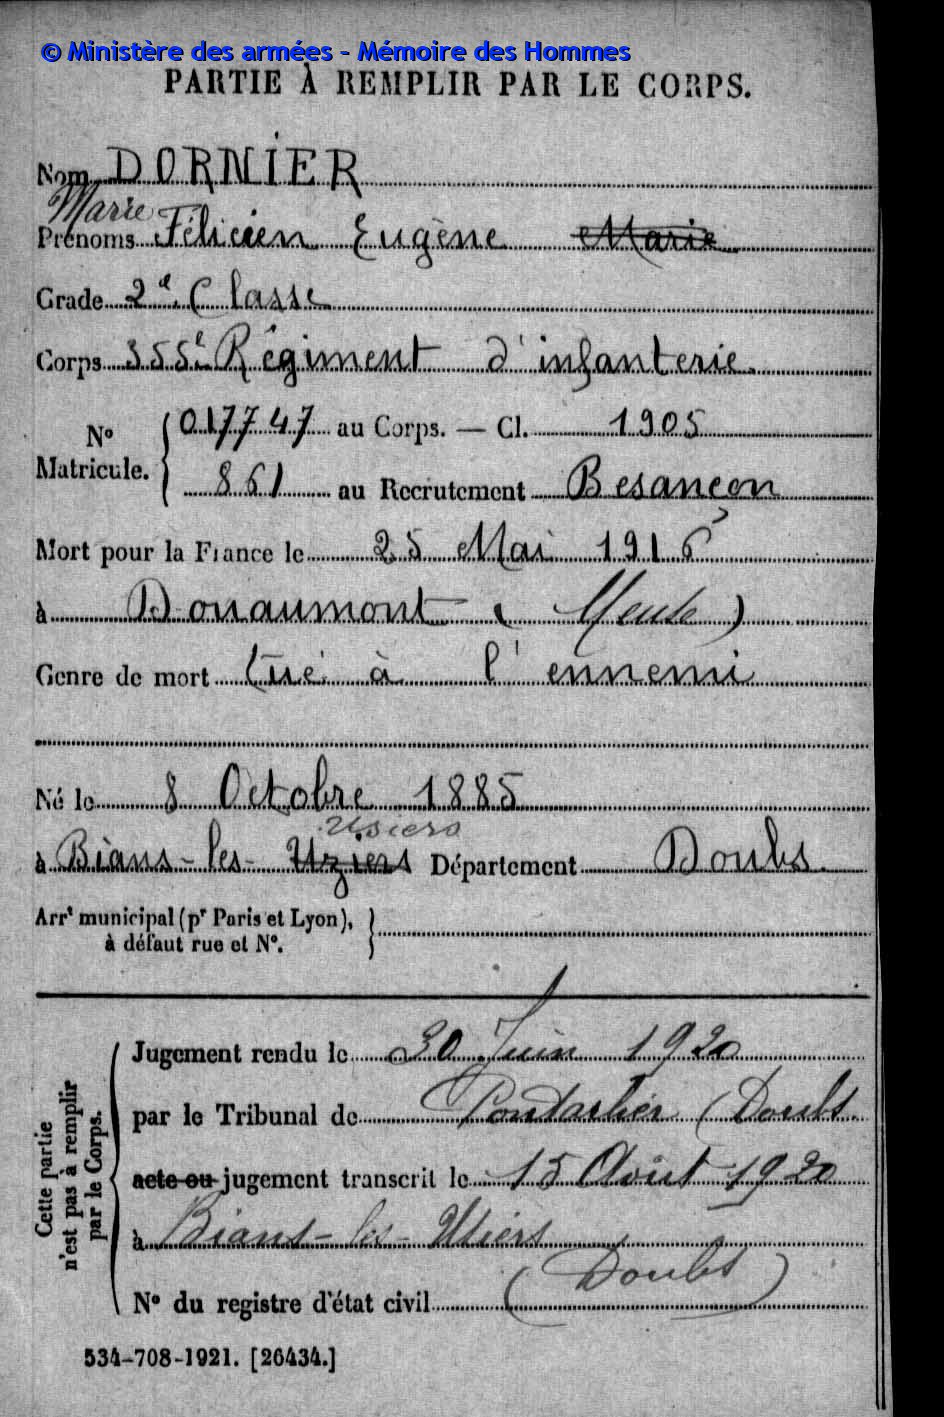 © Ministère des armées - Mémoire des Hommes
PARTIE À REMPLIR PAR LE CORPS.
Nom DORNIER
Marie
Prénoms Félicien Eugène Marie
Grade 2e Classe
Corps 355e Régiment d'infanterie.
No Matricule. { 017747 au Corps. — Cl. 1905
861 au Recrutement Besançon
Mort pour la France le 25 Mai 1916
à Douaumont (Meuse)
Genre de mort tué à l'ennemi
Né le 8 Octobre 1885
Usiers
à Bians-les-Uziers Département Doubs.
Arrt municipal (pr Paris et Lyon),
à défaut rue et No.
Cette partie n'est pas à remplir par le Corps.
Jugement rendu le 30 Juin 1920
par le Tribunal de Pontarlier (Doubs
acte ou jugement transcrit le 15 Août 1920
à Bians-les-Usiers
(Doubs)
No du registre d'état civil
534-708-1921. [26434.]